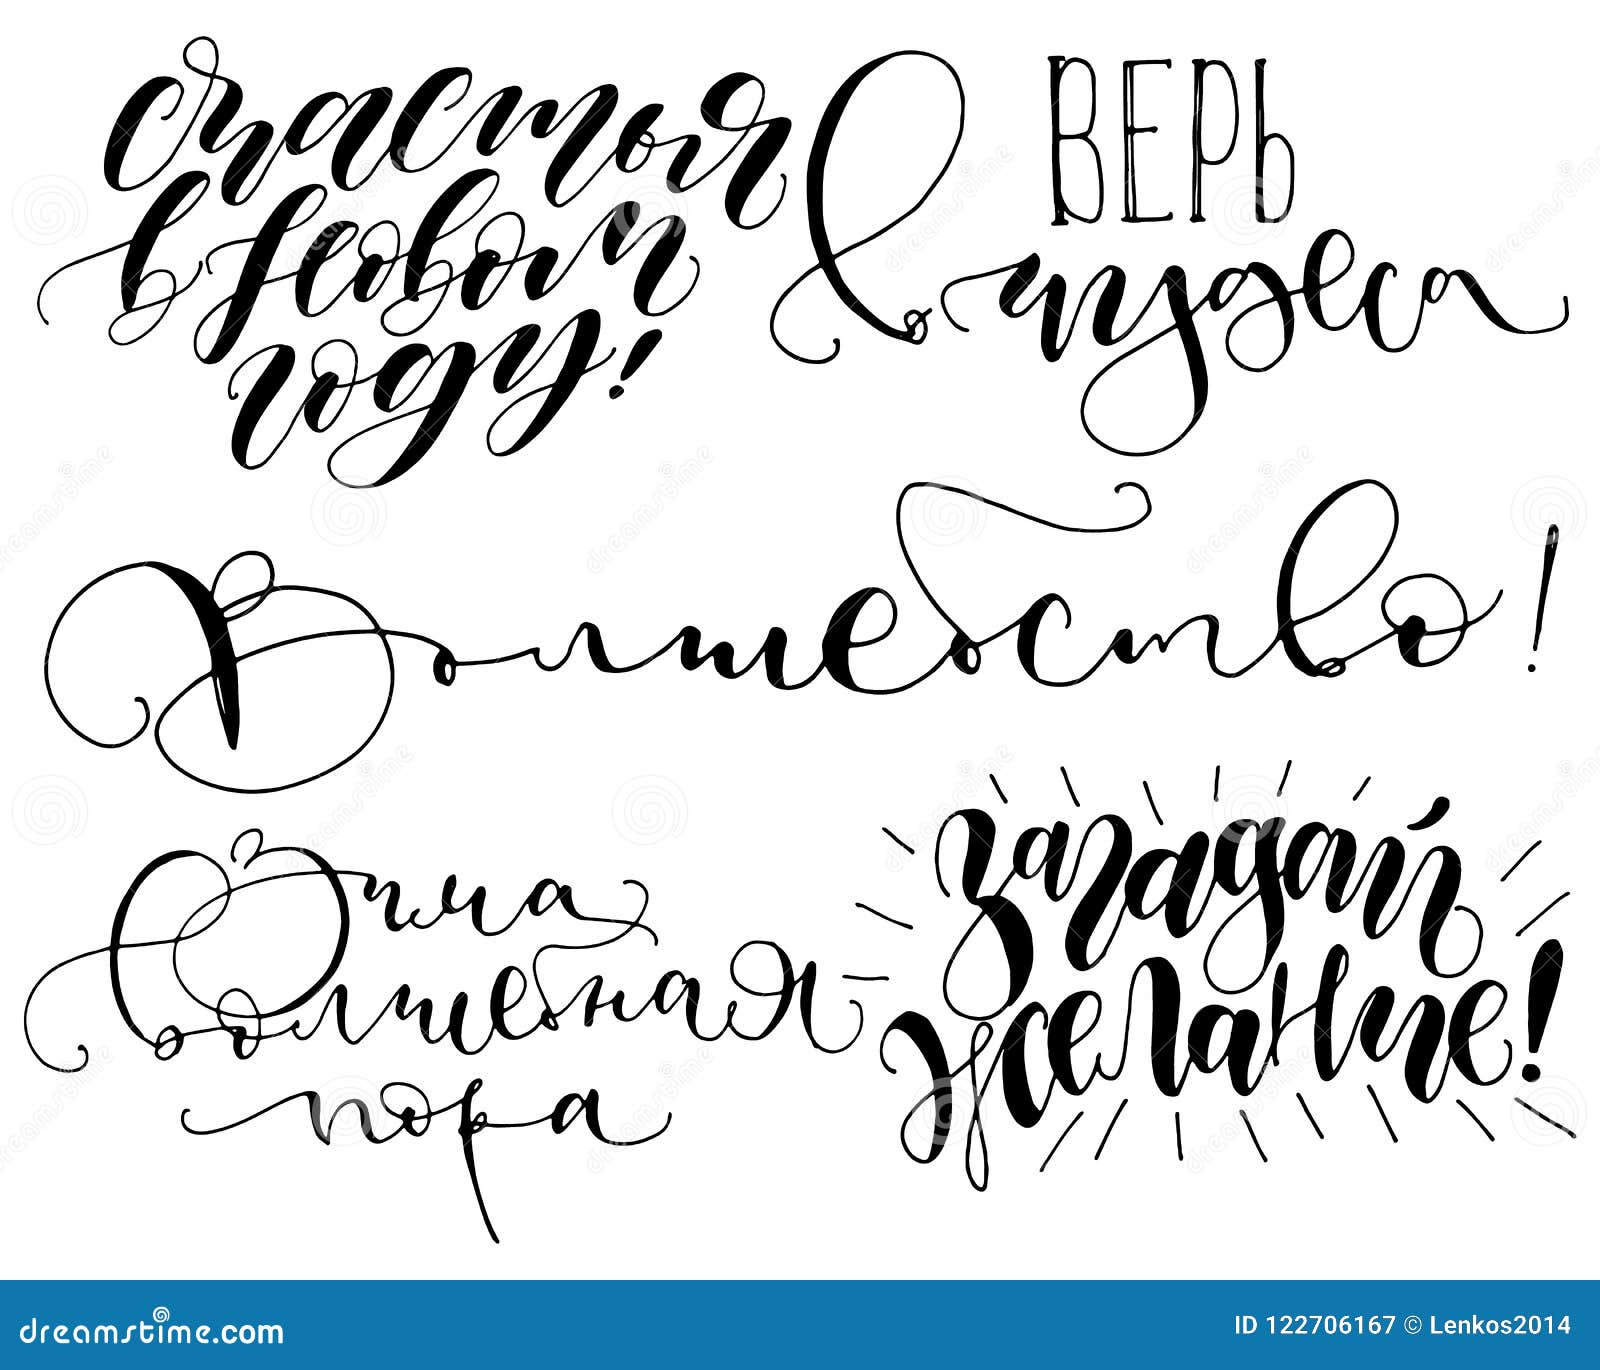 счастья
в новом
году!
ВЕРЬ
в чудеса
Волшебство!
Зима
волшебная
пора
загадай
желание!
dreamstime.com
ID 122706167 © Lenkos2014